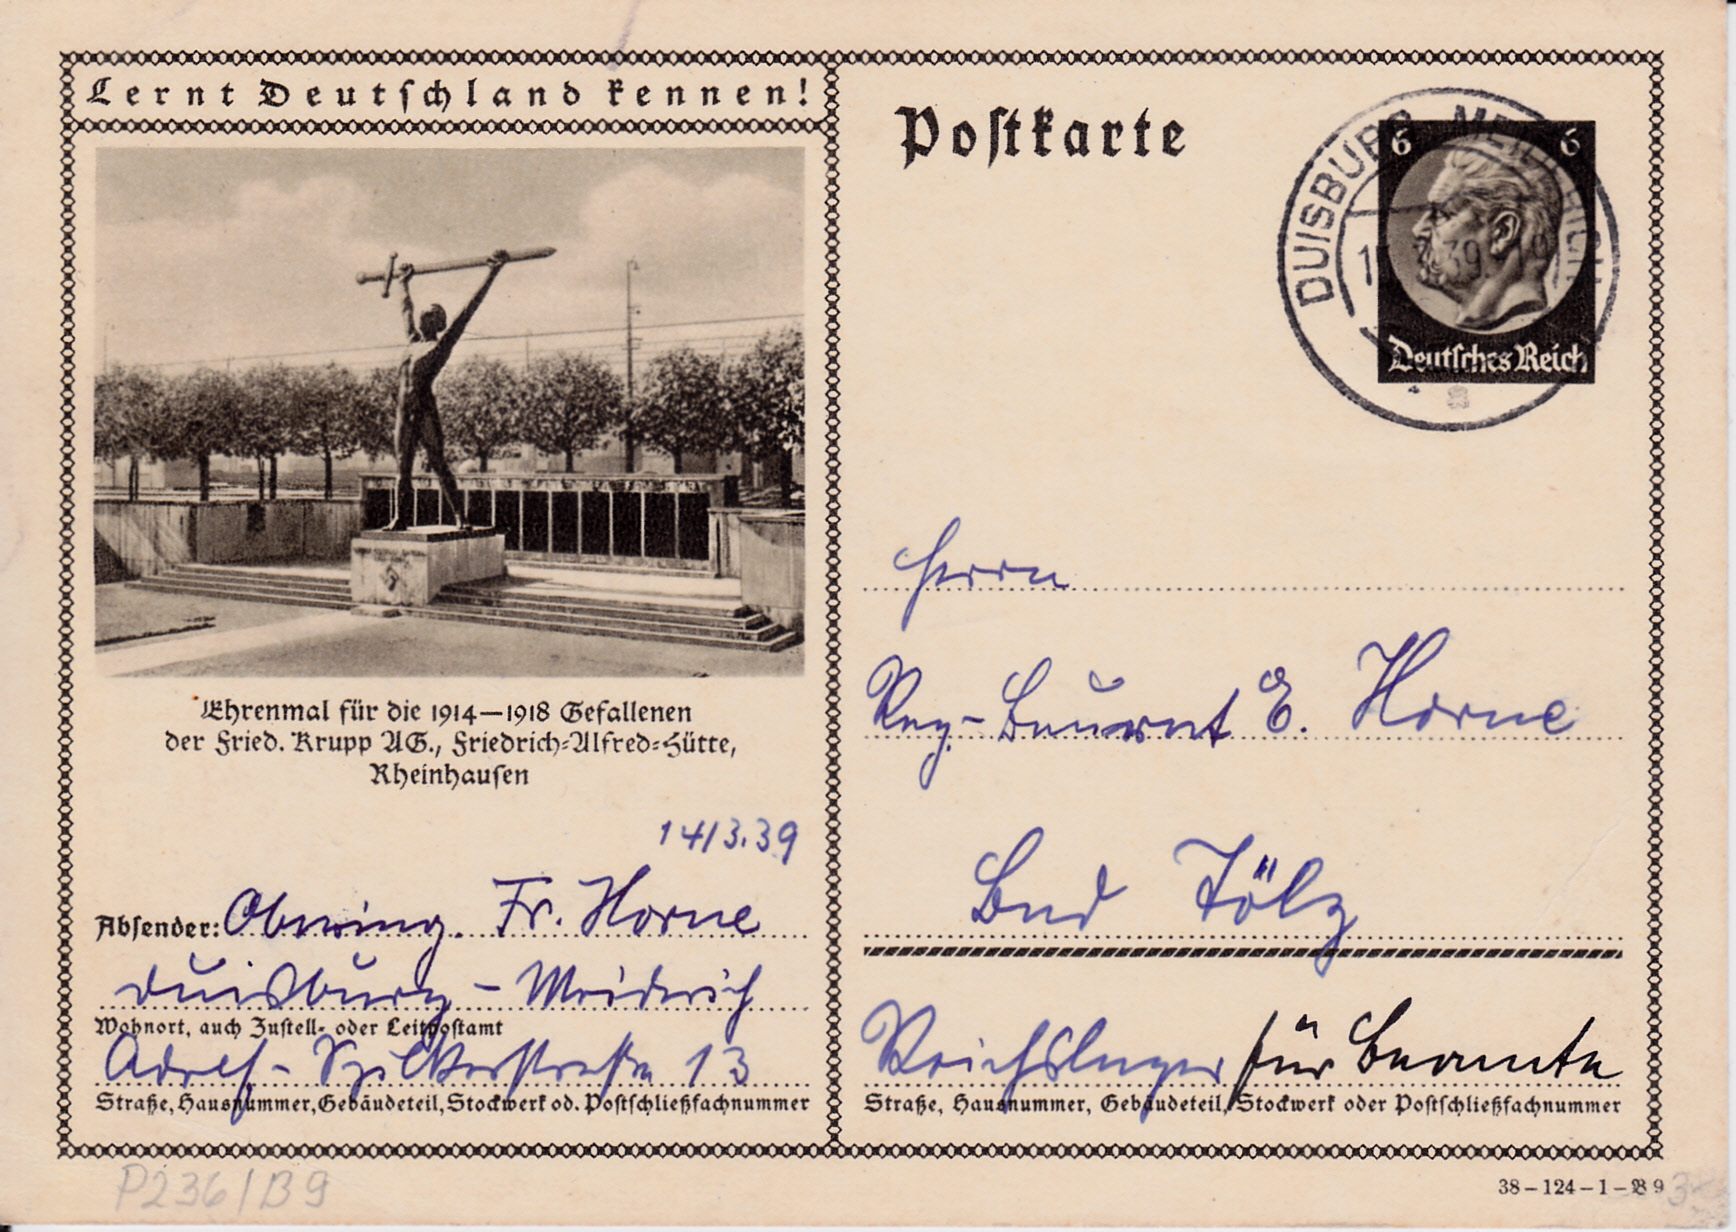 Lernt Deutschland kennen!
Ehrenmal für die 1914—1918 Gefallenen
der Fried. Krupp AG., Friedrich-Alfred-Hütte,
Rheinhausen
14/3.39
Absender: Obering. Fr. Horne
Duisburg - Meiderich
Wohnort, auch Zustell- oder Leitpostamt
Adolf - 13
Straße, Hausnummer, Gebäudeteil, Stockwerk od. Postschließfachnummer
P236/B9
Postkarte
6 6
Deutsches Reich
DUISBURG-MEIDERICH
39
Herrn
Reg-Baurat E. Horne
Bad Tölz
Reichslager für Beamte
Straße, Hausnummer, Gebäudeteil, Stockwerk oder Postschließfachnummer
38-124-1-B9
3